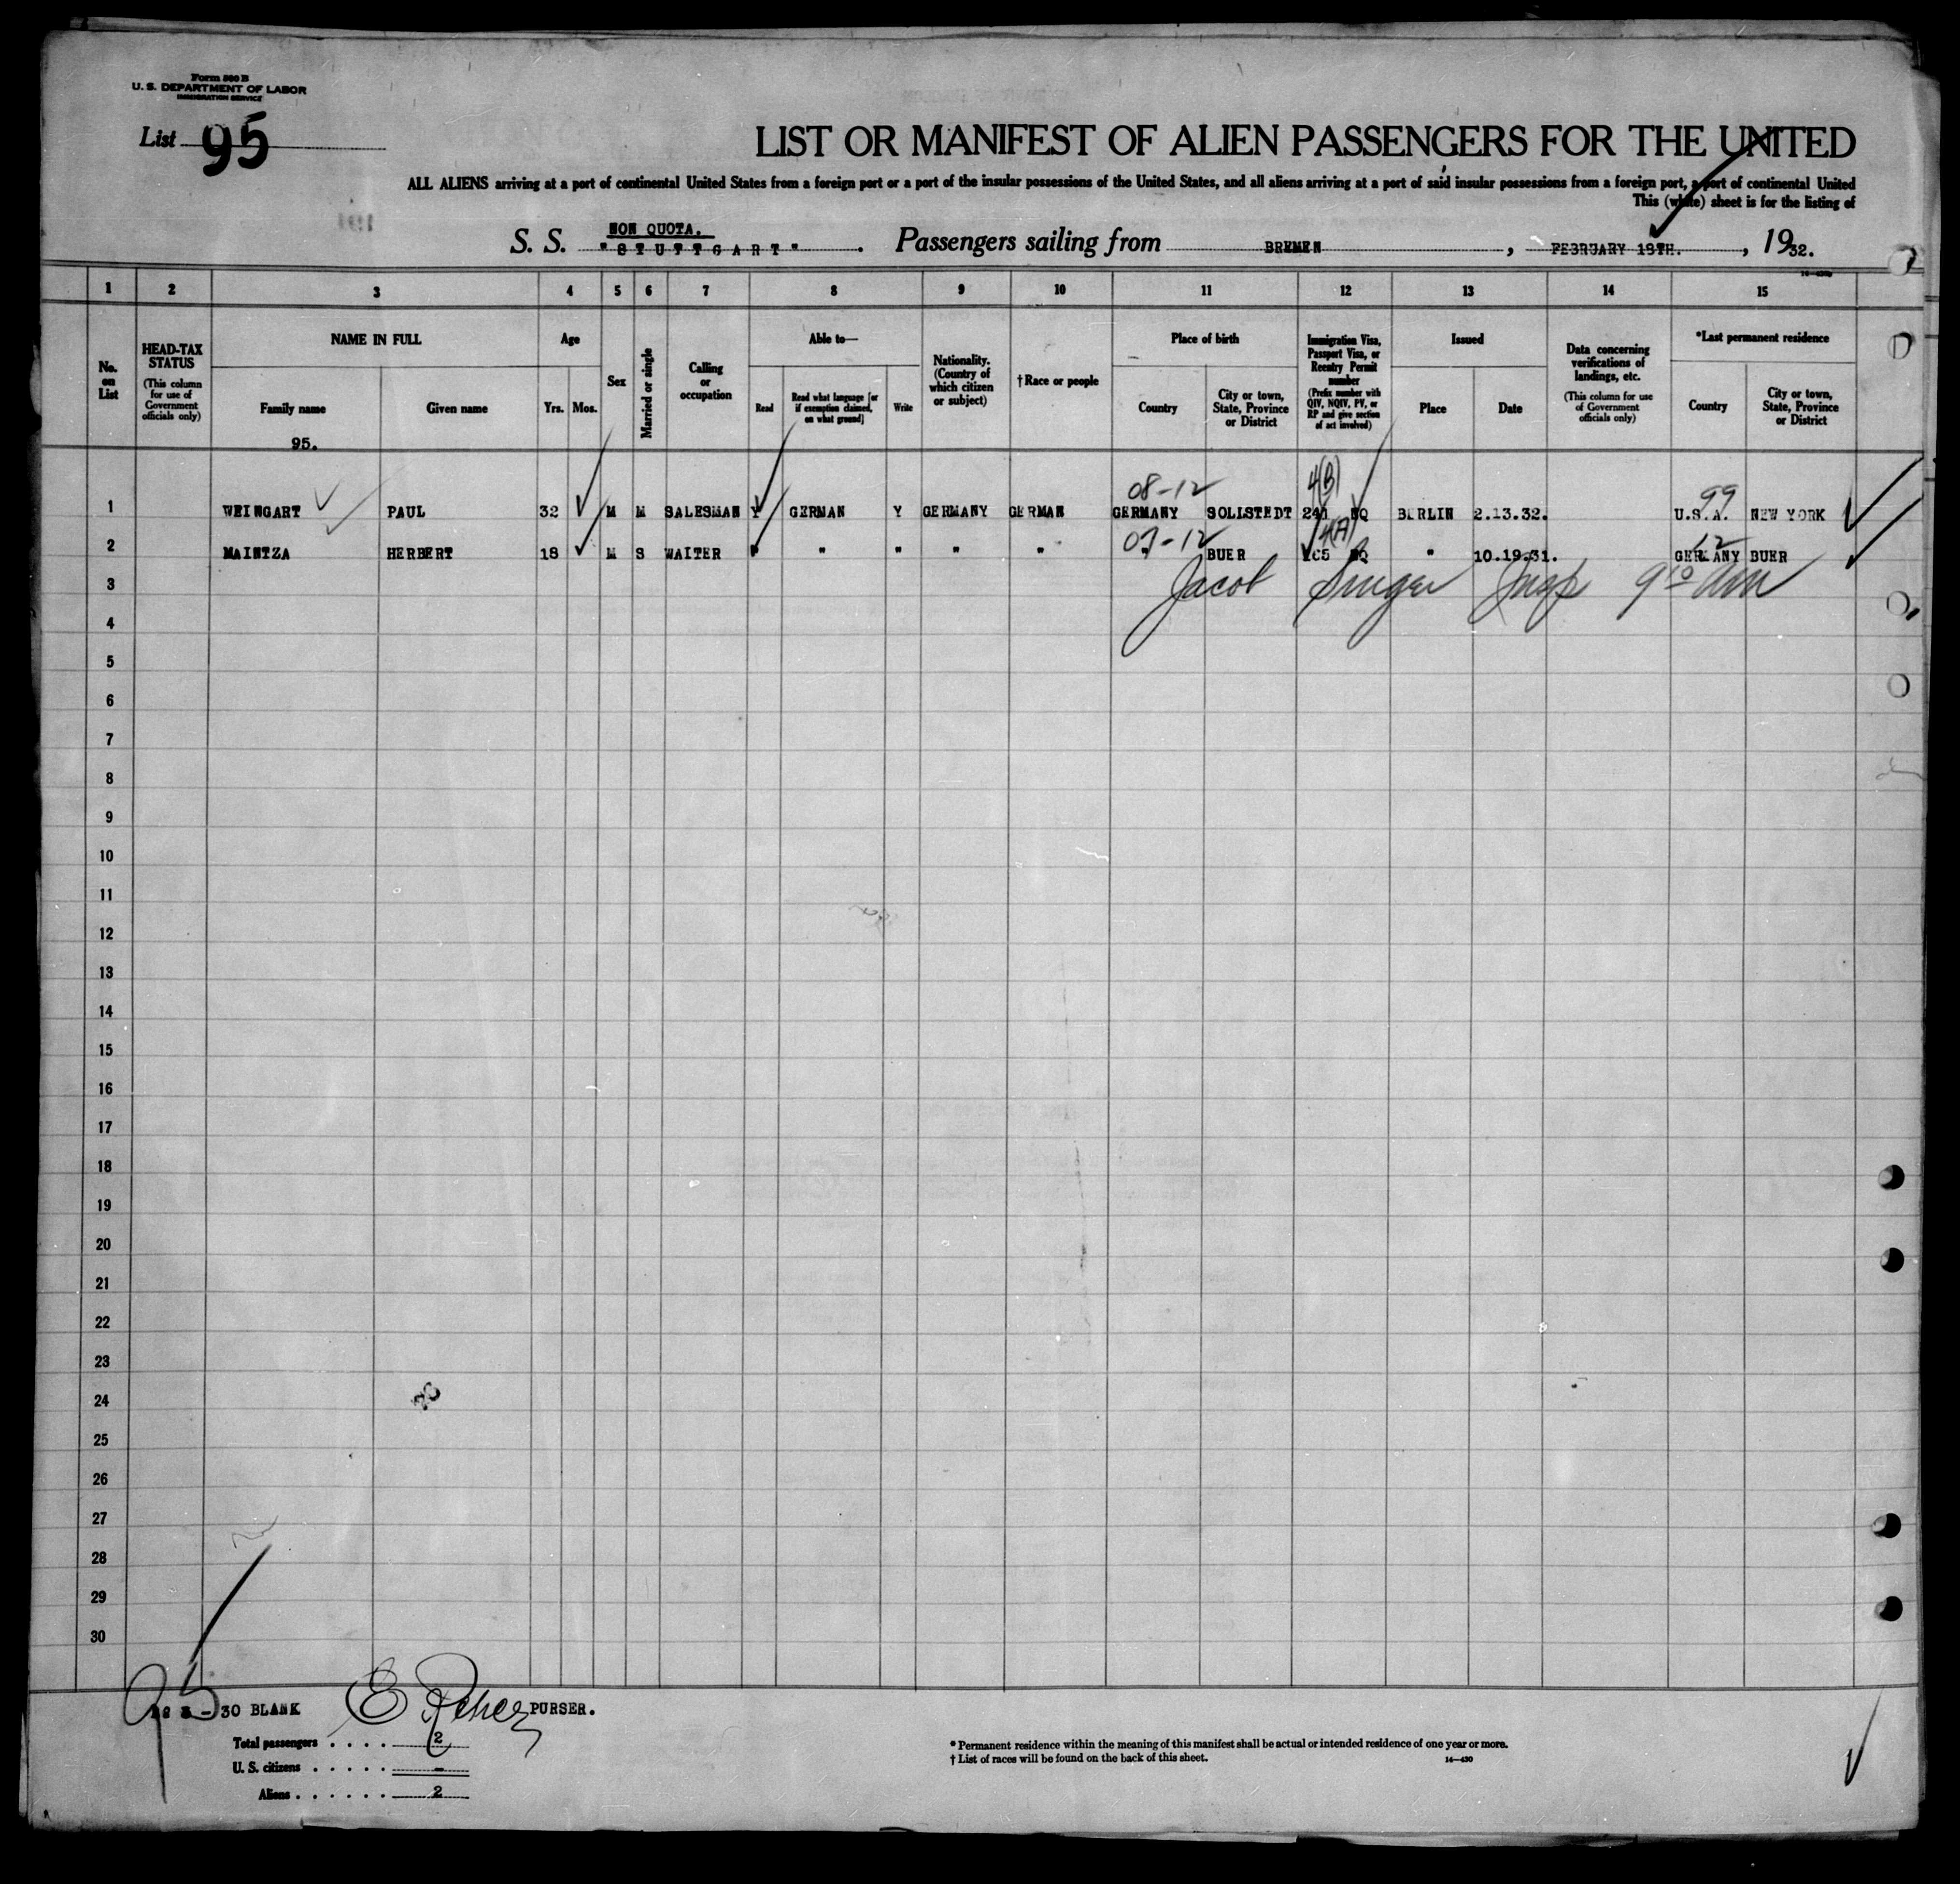 Form 500 B
U. S. DEPARTMENT OF LABOR
IMMIGRATION SERVICE
List 95
LIST OR MANIFEST OF ALIEN PASSENGERS FOR THE UNITED
ALL ALIENS arriving at a port of continental United States from a foreign port or a port of the insular possessions of the United States, and all aliens arriving at a port of said insular possessions from a foreign port, a port of continental United
This (white) sheet is for the listing of
NON QUOTA.
S. S. "STUTTGART". Passengers sailing from BREMEN, FEBRUARY 18TH., 1932.
1 2 3 4 5 6 7 8 9 10 11 12 13 14 15
No. on List
HEAD-TAX STATUS (This column for use of Government officials only)
NAME IN FULL
Family name Given name
95.
Age
Yrs. Mos.
Sex
Married or single
Calling or occupation
Able to—
Read
Read what language [or if exemption claimed, on what ground]
Write
Nationality. (Country of which citizen or subject)
† Race or people
Place of birth
Country
City or town, State, Province or District
Immigration Visa, Passport Visa, or Reentry Permit number (Prefix number with QIV, NQIV, PV, or RP and give section of act involved)
Issued
Place Date
Data concerning verifications of landings, etc. (This column for use of Government officials only)
*Last permanent residence
Country
City or town, State, Province or District
08-12 4(B) 99
1 WEINGART PAUL 32 M M SALESMAN Y GERMAN Y GERMANY GERMAN GERMANY SOLLSTEDT 241 NQ BERLIN 2.13.32. U.S.A. NEW YORK
07-12 4(A) 12
2 MAINTZA HERBERT 18 M S WAITER " " " " " " BUER NQ " 10.19.31. GERMANY BUER
3 Jacob Singer Insp 9 10 AM
4
5
6
7
8
9
10
11
12
13
14
15
16
17
18
19
20
21
22
23
24
25
26
27
28
29
30
95
3 - 30 BLANK PURSER.
Total passengers . . . . 2
U. S. citizens . . . . . -
Aliens . . . . . . 2
* Permanent residence within the meaning of this manifest shall be actual or intended residence of one year or more.
† List of races will be found on the back of this sheet. 14—430